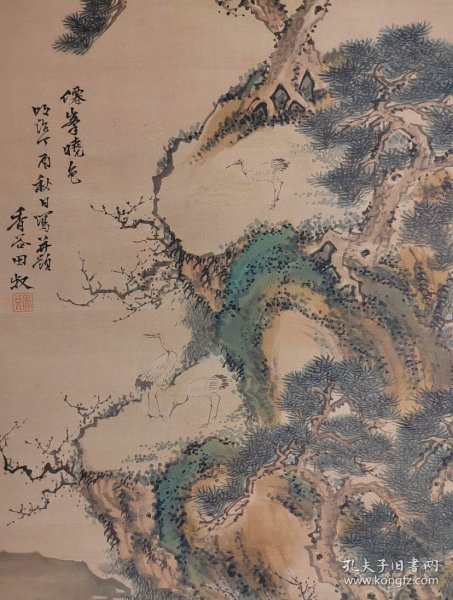 僊峯曉色
明治丁酉秋日寫并題
香谷田叔
孔夫子旧书网
www.kongfz.com